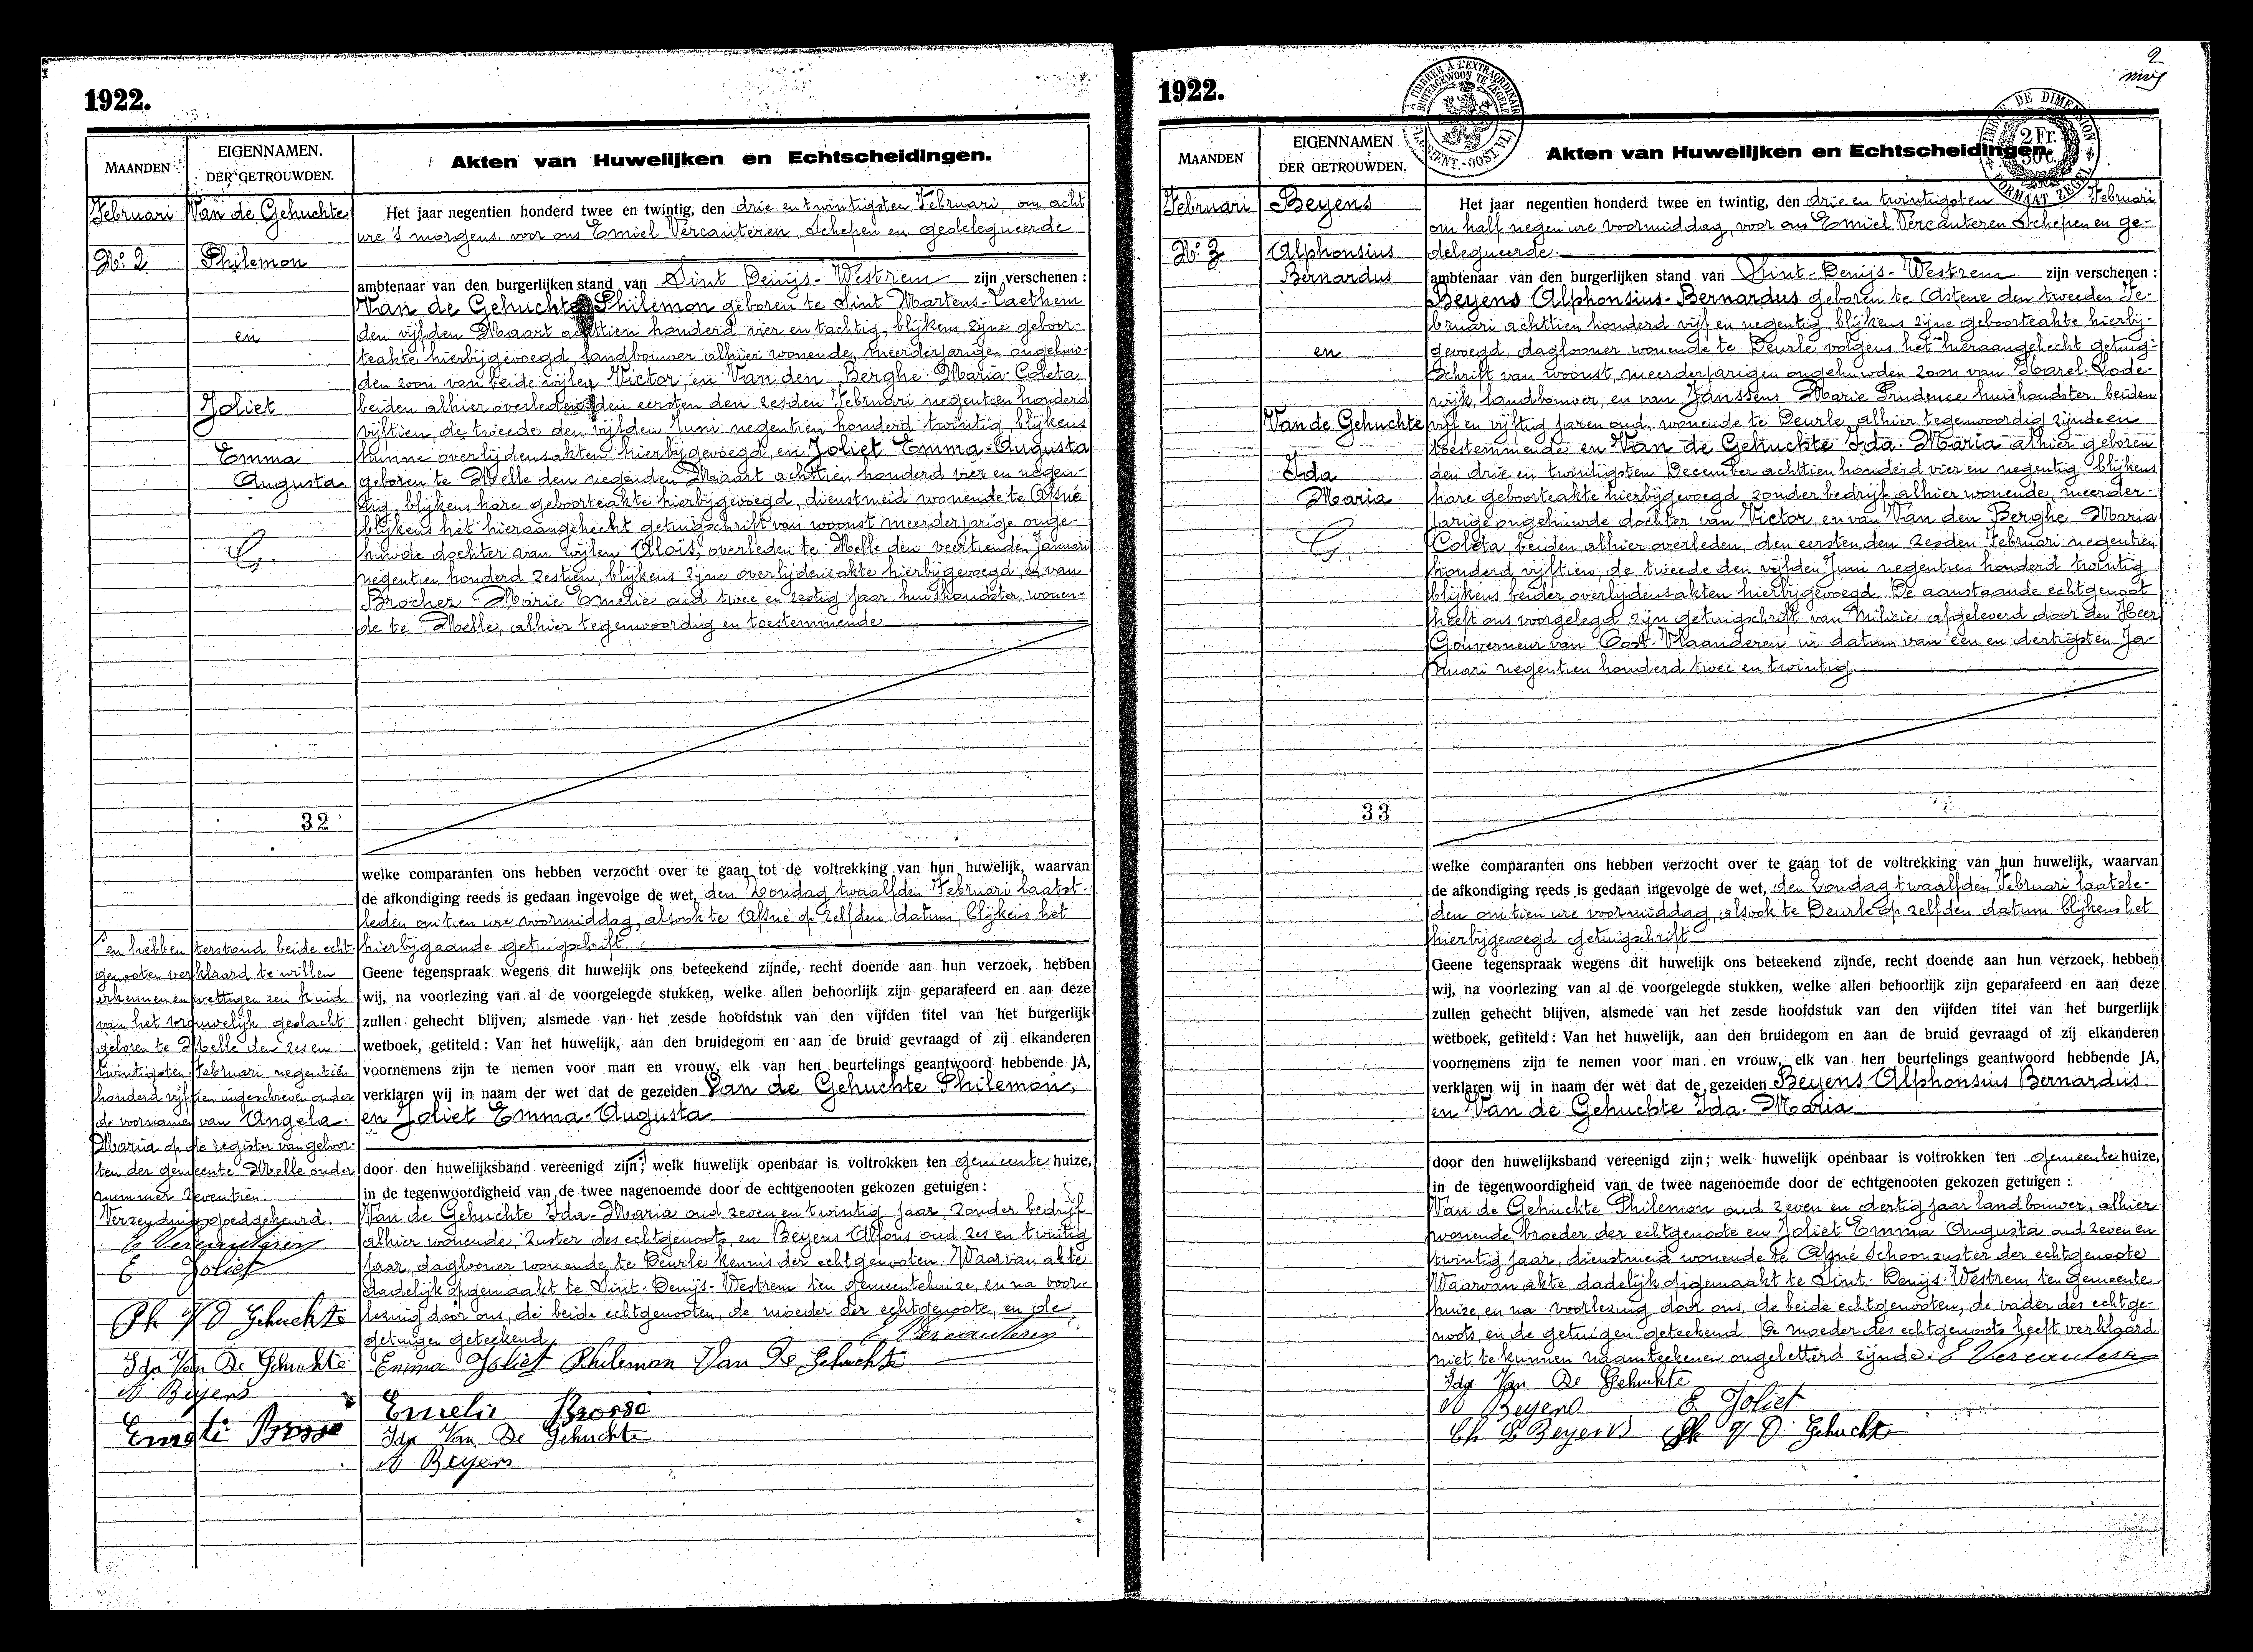 1922.
MAANDEN
EIGENNAMEN.
DER GETROUWDEN.
Akten van Huwelijken en Echtscheidingen.
Februari
Van de Gehuchte
No. 2
Philemon
en
Joliet
Emma
Augusta
G.
32
Het jaar negentien honderd twee en twintig, den drie en twintigsten Februari, om acht
ure 's morgens voor ons Emiel Vercauteren, Schepen en gedelegueerde
ambtenaar van den burgerlijken stand van Sint Denijs-Westrem zijn verschenen :
Van de Gehuchte Philemon geboren te Sint Martens-Laethem
den vijfden Maart achttien honderd vier en tachtig, blijkens zijne geboor-
teakte hierbijgevoegd, landbouwer alhier wonende, meerderjarigen ongehuw-
den zoon van beide wijlen Victor, en Van den Berghe Maria Coleta
beiden alhier overleden, den eersten den zesden Februari negentien honderd
vijftien, de tweede den vijfden Juni negentien honderd twintig, blijkens
hunne overlijdensakten hierbijgevoegd, en Joliet Emma-Augusta
geboren te Melle den negenden Maart achttien honderd vier en negen-
tig, blijkens hare geboorteakte hierbijgevoegd, dienstmeid wonende te Afsné
blijkens het hieraangehecht getuigschrift van woonst meerderjarige onge-
huwde dochter van wijlen Aloïs, overleden te Melle den veertienden Januari
negentien honderd zestien, blijkens zijne overlijdensakte hierbijgevoegd, en van
Brocher Marie Emelie oud twee en zestig jaar, huishoudster wonen-
de te Melle, alhier tegenwoordig en toestemmende
welke comparanten ons hebben verzocht over te gaan tot de voltrekking van hun huwelijk, waarvan
de afkondiging reeds is gedaan ingevolge de wet, den Zondag twaalfden Februari laatst-
leden om tien ure voormiddag, alsook te Afsné op zelfden datum, blijkens het
hierbijgaande getuigschrift
Geene tegenspraak wegens dit huwelijk ons beteekend zijnde, recht doende aan hun verzoek, hebben
wij, na voorlezing van al de voorgelegde stukken, welke allen behoorlijk zijn geparafeerd en aan deze
zullen gehecht blijven, alsmede van het zesde hoofdstuk van den vijfden titel van het burgerlijk
wetboek, getiteld : Van het huwelijk, aan den bruidegom en aan de bruid gevraagd of zij elkanderen
voornemens zijn te nemen voor man en vrouw, elk van hen beurtelings geantwoord hebbende JA,
verklaren wij in naam der wet dat de gezeiden Van de Gehuchte Philemon,
en Joliet Emma-Augusta
door den huwelijksband vereenigd zijn; welk huwelijk openbaar is voltrokken ten gemeente huize,
in de tegenwoordigheid van de twee nagenoemde door de echtgenooten gekozen getuigen :
Van de Gehuchte Ida-Maria oud zeven en twintig jaar, zonder bedrijf
alhier wonende, zuster des echtgenoots, en Beyens Alfons oud zes en twintig
jaar, daglooner wonende te Deurle kennis der echtgenooten. Waarvan akte
dadelijk opgemaakt te Sint-Denijs-Westrem ten gemeentehuize, en na voor-
lezing door ons, de beide echtgenooten, de moeder der echtgenoote, en de
getuigen geteekend.
E Vercauteren
Emma Joliet Philemon Van De Gehuchte
Emelie Brossé
Ida Van De Gehuchte
A Beyens
en hebben terstond beide echt-
genooten verklaard te willen
erkennen en wettigen een kind
van het vrouwelijk geslacht
geboren te Melle den zes en
twintigsten Februari negentien
honderd vijftien ingeschreven onder
de voornamen van Angela
Maria op de register van geboor-
ten der gemeente Melle onder
nummer zeventien.
Verzending goedgekeurd.
E Vercauteren
E Joliet
Ph V D Gehuchte
Ida Van De Gehuchte
A Beyens
Emelie Brosse
2
1922.
MAANDEN
EIGENNAMEN
DER GETROUWDEN.
Akten van Huwelijken en Echtscheidingen.
A TIMBRER A L'EXTRAORDINAIRE
BUITENGEWOON TE ZEGELEN
TIMBRE DE DIMENSION
2 Fr.
50 C.
FORMAAT ZEGEL
Februari
Beyens
No. 3
Alphonsius
Bernardus
en
Van de Gehuchte
Ida
Maria
G.
33
Het jaar negentien honderd twee en twintig, den drie en twintigsten Februari
om half negen ure voormiddag, voor ons Emiel Vercauteren Schepen en ge-
delegueerde
ambtenaar van den burgerlijken stand van Sint-Denijs-Westrem zijn verschenen :
Beyens Alphonsius-Bernardus geboren te Astene den tweeden Fe-
bruari achttien honderd vijf en negentig, blijkens zijne geboorteakte hierbij-
gevoegd, daglooner wonende te Deurle volgens het hieraangehecht getuig-
schrift van woonst, meerderjarigen ongehuwden zoon van Karel-Lode-
wijk, landbouwer, en van Janssens Marie Prudence huishoudster, beiden
vijf en vijftig jaren oud, wonende te Deurle, alhier tegenwoordig zijnde en
toestemmende en Van de Gehuchte Ida-Maria alhier geboren
den drie en twintigsten December achttien honderd vier en negentig blijkens
hare geboorteakte hierbijgevoegd, zonder bedrijf alhier wonende, meerder-
jarige ongehuwde dochter van Victor, en van Van den Berghe Maria
Coleta, beiden alhier overleden, den eersten den zesden Februari negentien
honderd vijftien, de tweede den vijfden Juni negentien honderd twintig
blijkens beider overlijdensakten hierbijgevoegd. De aanstaande echtgenoot
heeft ons voorgelegd zijn getuigschrift van Milicie afgeleverd door den Heer
Gouverneur van Oost-Vlaanderen in datum van een en dertigsten Ja-
nuari negentien honderd twee en twintig
welke comparanten ons hebben verzocht over te gaan tot de voltrekking van hun huwelijk, waarvan
de afkondiging reeds is gedaan ingevolge de wet, den Zondag twaalfden Februari laatsle-
den om tien ure voormiddag, alsook te Deurle op zelfden datum, blijkens het
hierbijgevoegd getuigschrift
Geene tegenspraak wegens dit huwelijk ons beteekend zijnde, recht doende aan hun verzoek, hebben
wij, na voorlezing van al de voorgelegde stukken, welke allen behoorlijk zijn geparafeerd en aan deze
zullen gehecht blijven, alsmede van het zesde hoofdstuk van den vijfden titel van het burgerlijk
wetboek, getiteld : Van het huwelijk, aan den bruidegom en aan de bruid gevraagd of zij elkanderen
voornemens zijn te nemen voor man en vrouw, elk van hen beurtelings geantwoord hebbende JA,
verklaren wij in naam der wet dat de gezeiden Beyens Alphonsius Bernardus
en Van de Gehuchte Ida-Maria
door den huwelijksband vereenigd zijn; welk huwelijk openbaar is voltrokken ten gemeente huize,
in de tegenwoordigheid van de twee nagenoemde door de echtgenooten gekozen getuigen :
Van de Gehuchte Philemon oud zeven en dertig jaar landbouwer, alhier
wonende broeder der echtgenoote en Joliet Emma Augusta oud zeven en
twintig jaar, dienstmeid wonende te Afsné schoonzuster der echtgenoote
Waarvan akte dadelijk opgemaakt te Sint-Denijs-Westrem ten gemeente
huize, en na voorlezing door ons, de beide echtgenooten, de vader des echtge-
noots, en de getuigen geteekend. De moeder des echtgenoots heeft verklaard
niet te kunnen naamteekenen ongeletterd zijnde. E Vercauteren
Ida Van De Gehuchte
A Beyens E Joliet
Ch L Beyens Ph V D Gehuchte